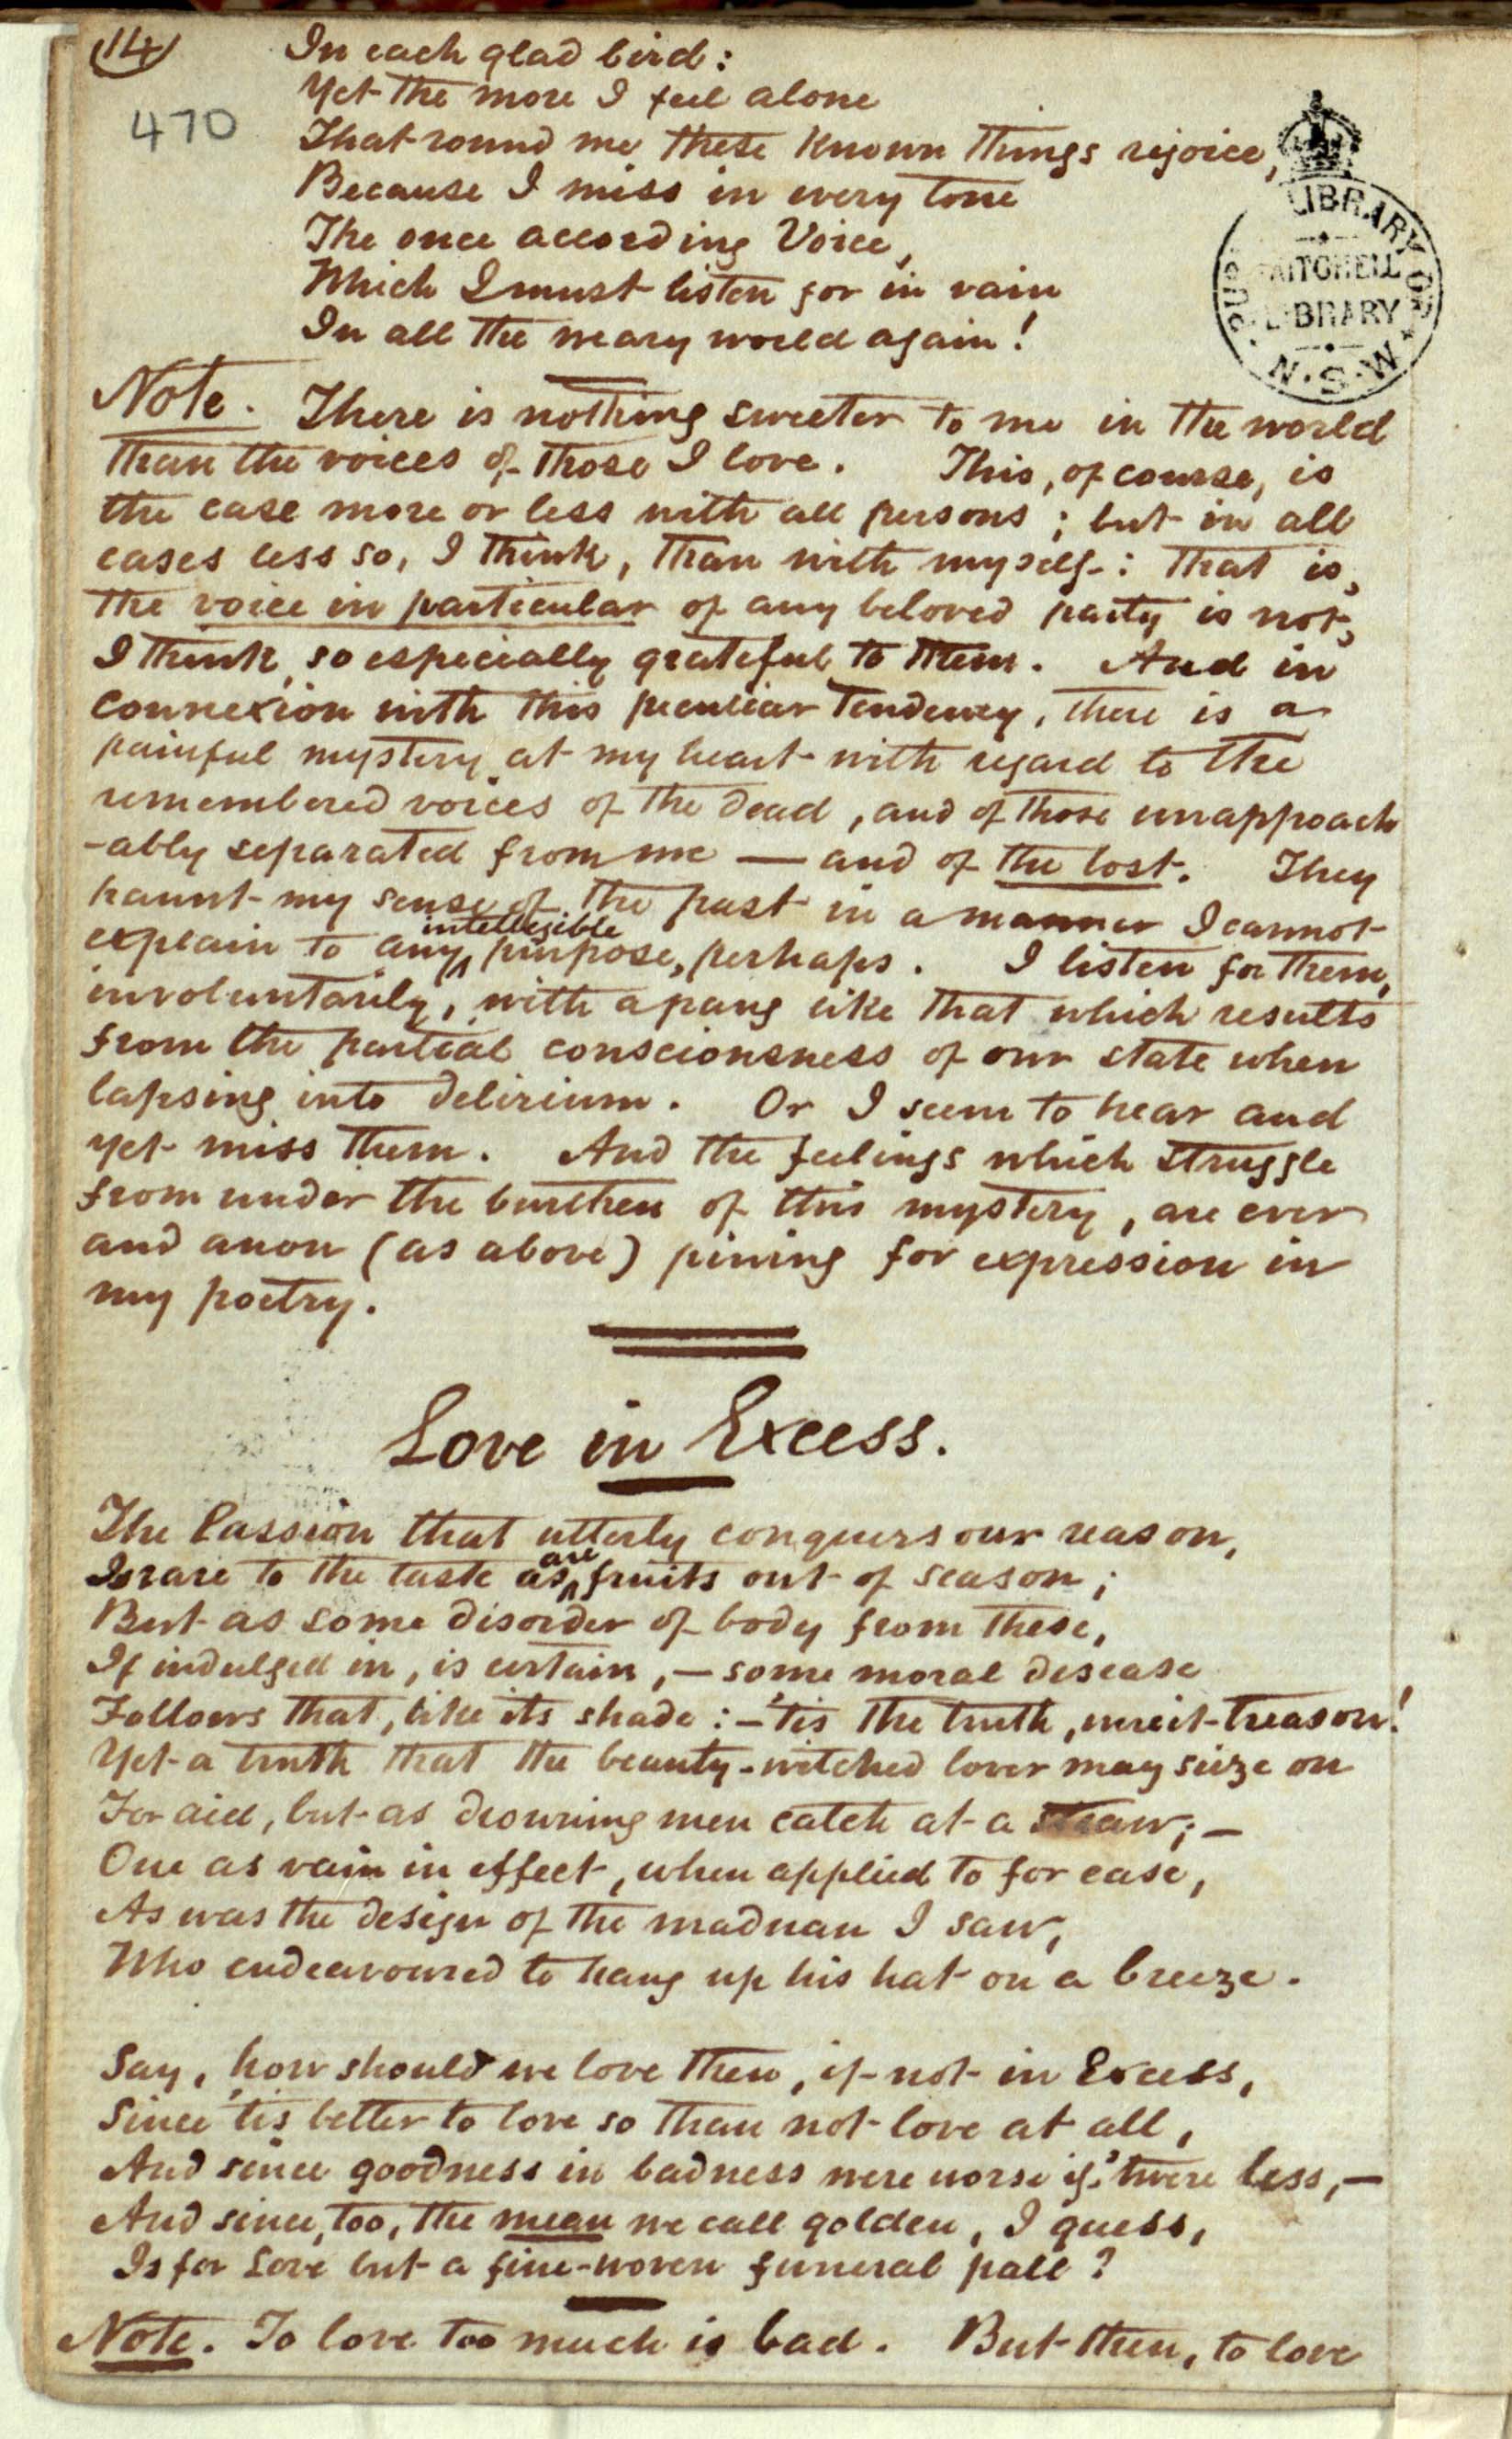 14
470
In each glad bird:
Yet the more I feel alone
That round me these known things rejoice,
Because I miss in every tone
The once according Voice,
Which I must listen for in vain
In all the weary world again!
LIBRARY OF
MITCHELL
LIBRARY
PUB
N.S.W
Note. There is nothing sweeter to me in the world
than the voices of those I love. This, of course, is
the case more or less with all persons; but in all
cases less so, I think, than with myself: that is,
the voice in particular of any beloved party is not,
I think, so especially grateful to them. And in
connexion with this peculiar tendency, there is a
painful mystery at my heart with regard to the
remembered voices of the dead, and of those unapproach
-ably separated from me — and of the lost. They
haunt my sense of the past in a manner I cannot
explain to any intellegible purpose, perhaps. I listen for them,
involuntarily, with a pang like that which results
from the partial consciousness of our state when
lapsing into delirium. Or I seem to hear and
yet miss them. And the feelings which struggle
from under the burthen of this mystery, are ever
and anon (as above) pining for expression in
my poetry.
Love in Excess.
The Passion that utterly conquers our reason,
Is rare to the taste as are fruits out of season;
But as some disorder of body from these,
If indulged in, is certain, — some moral disease
Follows that, like its shade: — 'tis the truth, wreit-treason!
Yet a truth that the beauty-witched lover may seize on
For aid, but as drowning men catch at a straw; —
One as vain in effect, when applied to for ease,
As was the design of the madman I saw,
Who endeavoured to hang up his hat on a breeze.
Say, how should we love then, if not in Excess,
Since 'tis better to love so than not love at all,
And since goodness in badness were worse if 'twere less, —
And since, too, the mean we call golden, I guess,
Is for Love but a fine-woven funeral pall?
Note. To love too much is bad. But then, to love